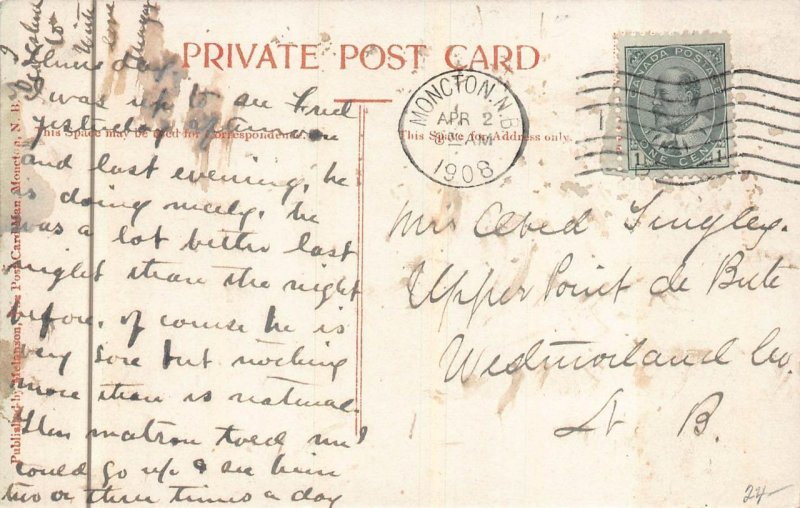 PRIVATE POST CARD
This Space may be used for Correspondence
This Space for Address only.
Published by Melanson, The Post Card Man, Moncton, N. B.
MONCTON. N.B.
APR 2
AM
1908
CANADA POSTAGE
1 ONE CENT 1
I was up to see Fred
yesterday afternoon
and last evening, he
is doing nicely, he
was a lot better last
night than the night
before, of course he is
very sore but nothing
more than is natural.
The matron told me I
could go up & see him
two or three times a day
Mrs Obed Tingley.
Upper Point de Bute
Westmorland Co.
N. B.
24-